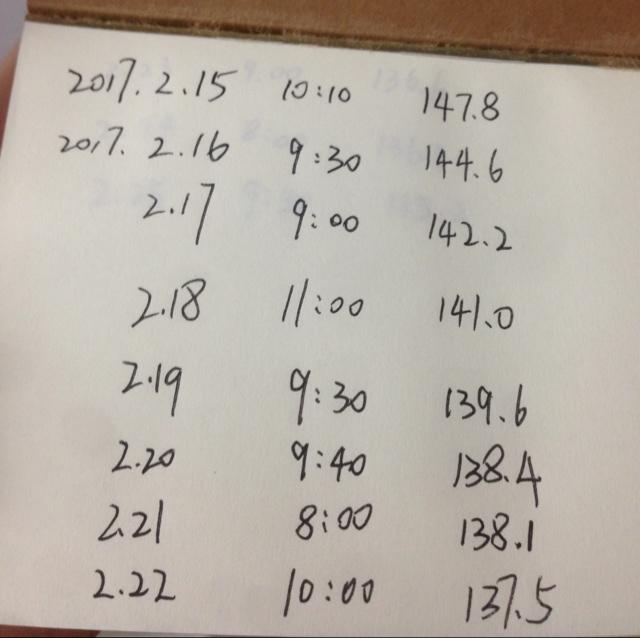 2017.2.15 10:10 147.8
2017.2.16 9:30 144.6
2.17 9:00 142.2
2.18 11:00 141.0
2.19 9:30 139.6
2.20 9:40 138.4
2.21 8:00 138.1
2.22 10:00 137.5